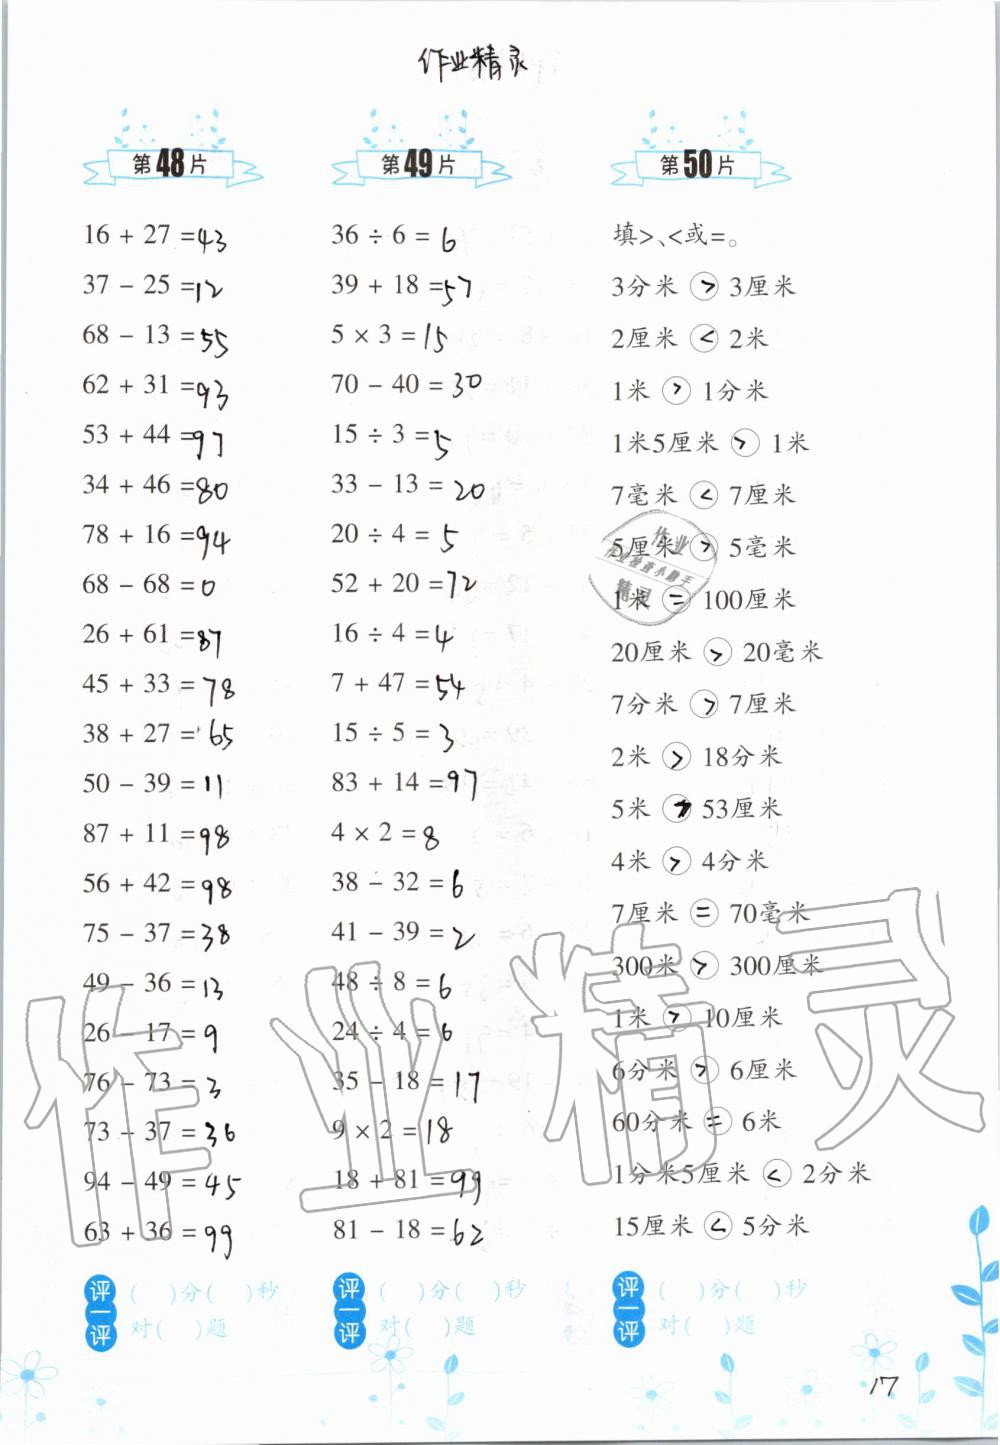 作业精灵
第48片
16 + 27 = 43
37 - 25 = 12
68 - 13 = 55
62 + 31 = 93
53 + 44 = 97
34 + 46 = 80
78 + 16 = 94
68 - 68 = 0
26 + 61 = 87
45 + 33 = 78
38 + 27 = 65
50 - 39 = 11
87 + 11 = 98
56 + 42 = 98
75 - 37 = 38
49 - 36 = 13
26 - 17 = 9
76 - 73 = 3
73 - 37 = 36
94 - 49 = 45
63 + 36 = 99
评一评
( )分( )秒
对( )题
第49片
36 ÷ 6 = 6
39 + 18 = 57
5 × 3 = 15
70 - 40 = 30
15 ÷ 3 = 5
33 - 13 = 20
20 ÷ 4 = 5
52 + 20 = 72
16 ÷ 4 = 4
7 + 47 = 54
15 ÷ 5 = 3
83 + 14 = 97
4 × 2 = 8
38 - 32 = 6
41 - 39 = 2
48 ÷ 8 = 6
24 ÷ 4 = 6
35 - 18 = 17
9 × 2 = 18
18 + 81 = 99
81 - 18 = 62
评一评
( )分( )秒
对( )题
第50片
填>、<或=。
3分米 > 3厘米
2厘米 < 2米
1米 > 1分米
1米5厘米 > 1米
7毫米 < 7厘米
5厘米 > 5毫米
1米 = 100厘米
20厘米 > 20毫米
7分米 > 7厘米
2米 > 18分米
5米 > 53厘米
4米 > 4分米
7厘米 = 70毫米
300米 > 300厘米
1米 > 10厘米
6分米 > 6厘米
60分米 = 6米
1分米5厘米 < 2分米
15厘米 < 5分米
评一评
( )分( )秒
对( )题
作业
作业检查小助手
精灵
作业精灵
17